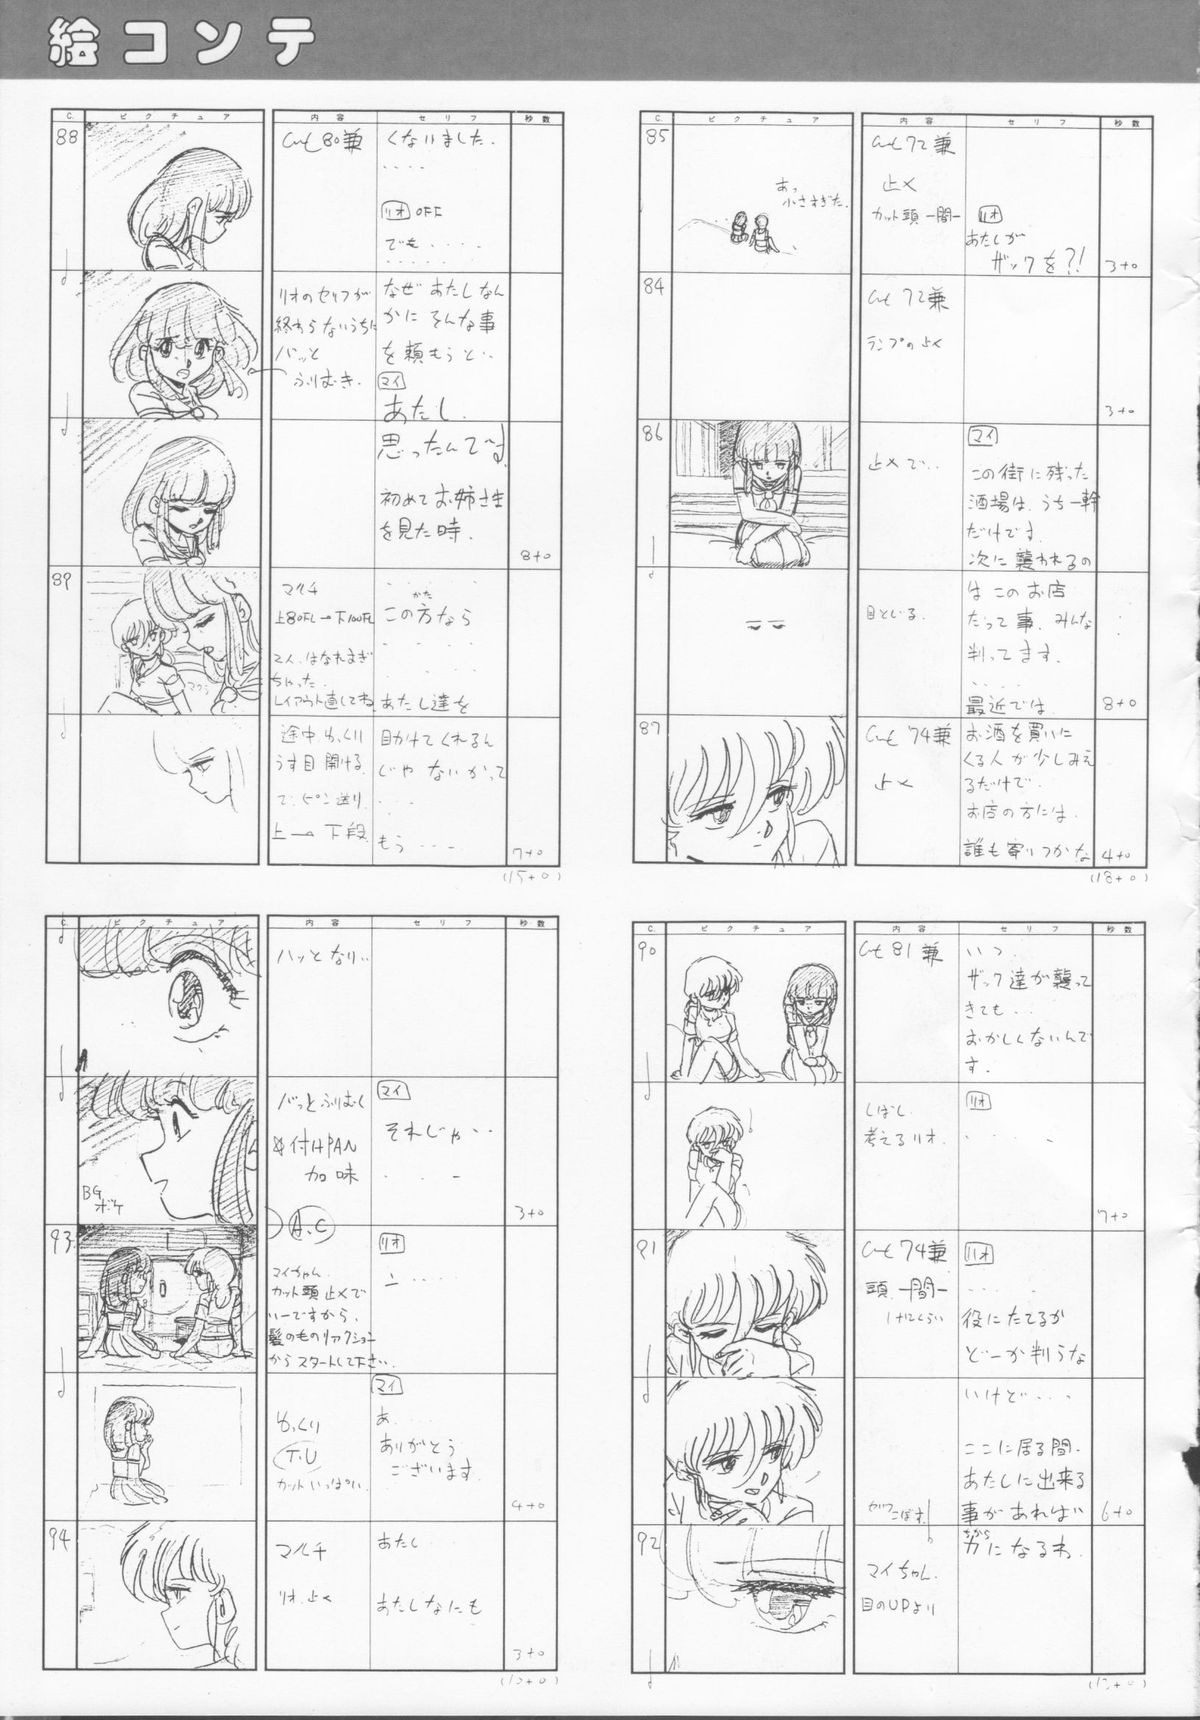 絵コンテ
C. ピクチュア 内容 セリフ 秒数
85
あっ
小さすぎた。
cut 72兼
止メ
カット頭一間
リオ
あたしが
ザックを?!
3+0
84
cut 72兼
ランプの止メ
3+0
86
止メで‥
マイ
この街に残った
酒場は、うち一軒
だけです。
次に襲われるの
目とじる。
は このお店
だって事、みんな
判ってます。
・・・・・
最近では
8+0
87
cut 74兼
止メ
お酒を買いに
くる人が少しみえ
るだけで、
お店の方には、
誰も寄りつかな
4+0
(18+0)
C. ピクチュア 内容 セリフ 秒数
88
cut 80兼
くなりました。
・・・・
リオ OFF
でも・・・・
・・・・・
リオのセリフが
終わらないうちに
バッと
ふりむき。
なぜ あたしなん
かに そんな事
を頼もうと‥
マイ
あたし。
思ったんです。
初めてお姉さまを
見た時。
8+0
89
マルチ
上80FL→下100FL
2人、はなれすぎ
ちゃった。
レイアウト直してね
マクラ
かた
この方なら
・・・・
あたし達を
途中ゆっくり
うす目開ける。
で、ピン送り
上→下段
助けてくれるん
じゃないかって
・・・
もう・・・
7+0
(15+0)
C. ピクチュア 内容 セリフ 秒数
90
cut 81兼
いつ、
ザック達が襲って
きても‥
おかしくないんで
す。
しばし
考えるリオ。
リオ
・・・・
7+0
91
cut 74兼
頭一間
リオ
・・・・
役にたてるか
どーか判らな
いけど・・・
ここに居る間、
あたしに出来る
事があれば
6+0
92
マイちゃん、
目のUPより
ちから
力になるわ。
C. ピクチュア 内容 セリフ 秒数
ハッとなり‥
バッとふりむく
付けPAN
加味
BG
ボケ
マイ
それじゃ‥
・・・
3+0
93
A.C
マイちゃん
カット頭止メで
いーですから、
髪のものリアクション
からスタートして下さい。
リオ
ニ・・・・
ゆっくり
T.U
カットいっぱい
マイ
あ・・・・
ありがとう
ございます。
4+0
94
マルチ
リオ、止メ
あたし
あたしなにも
3+0